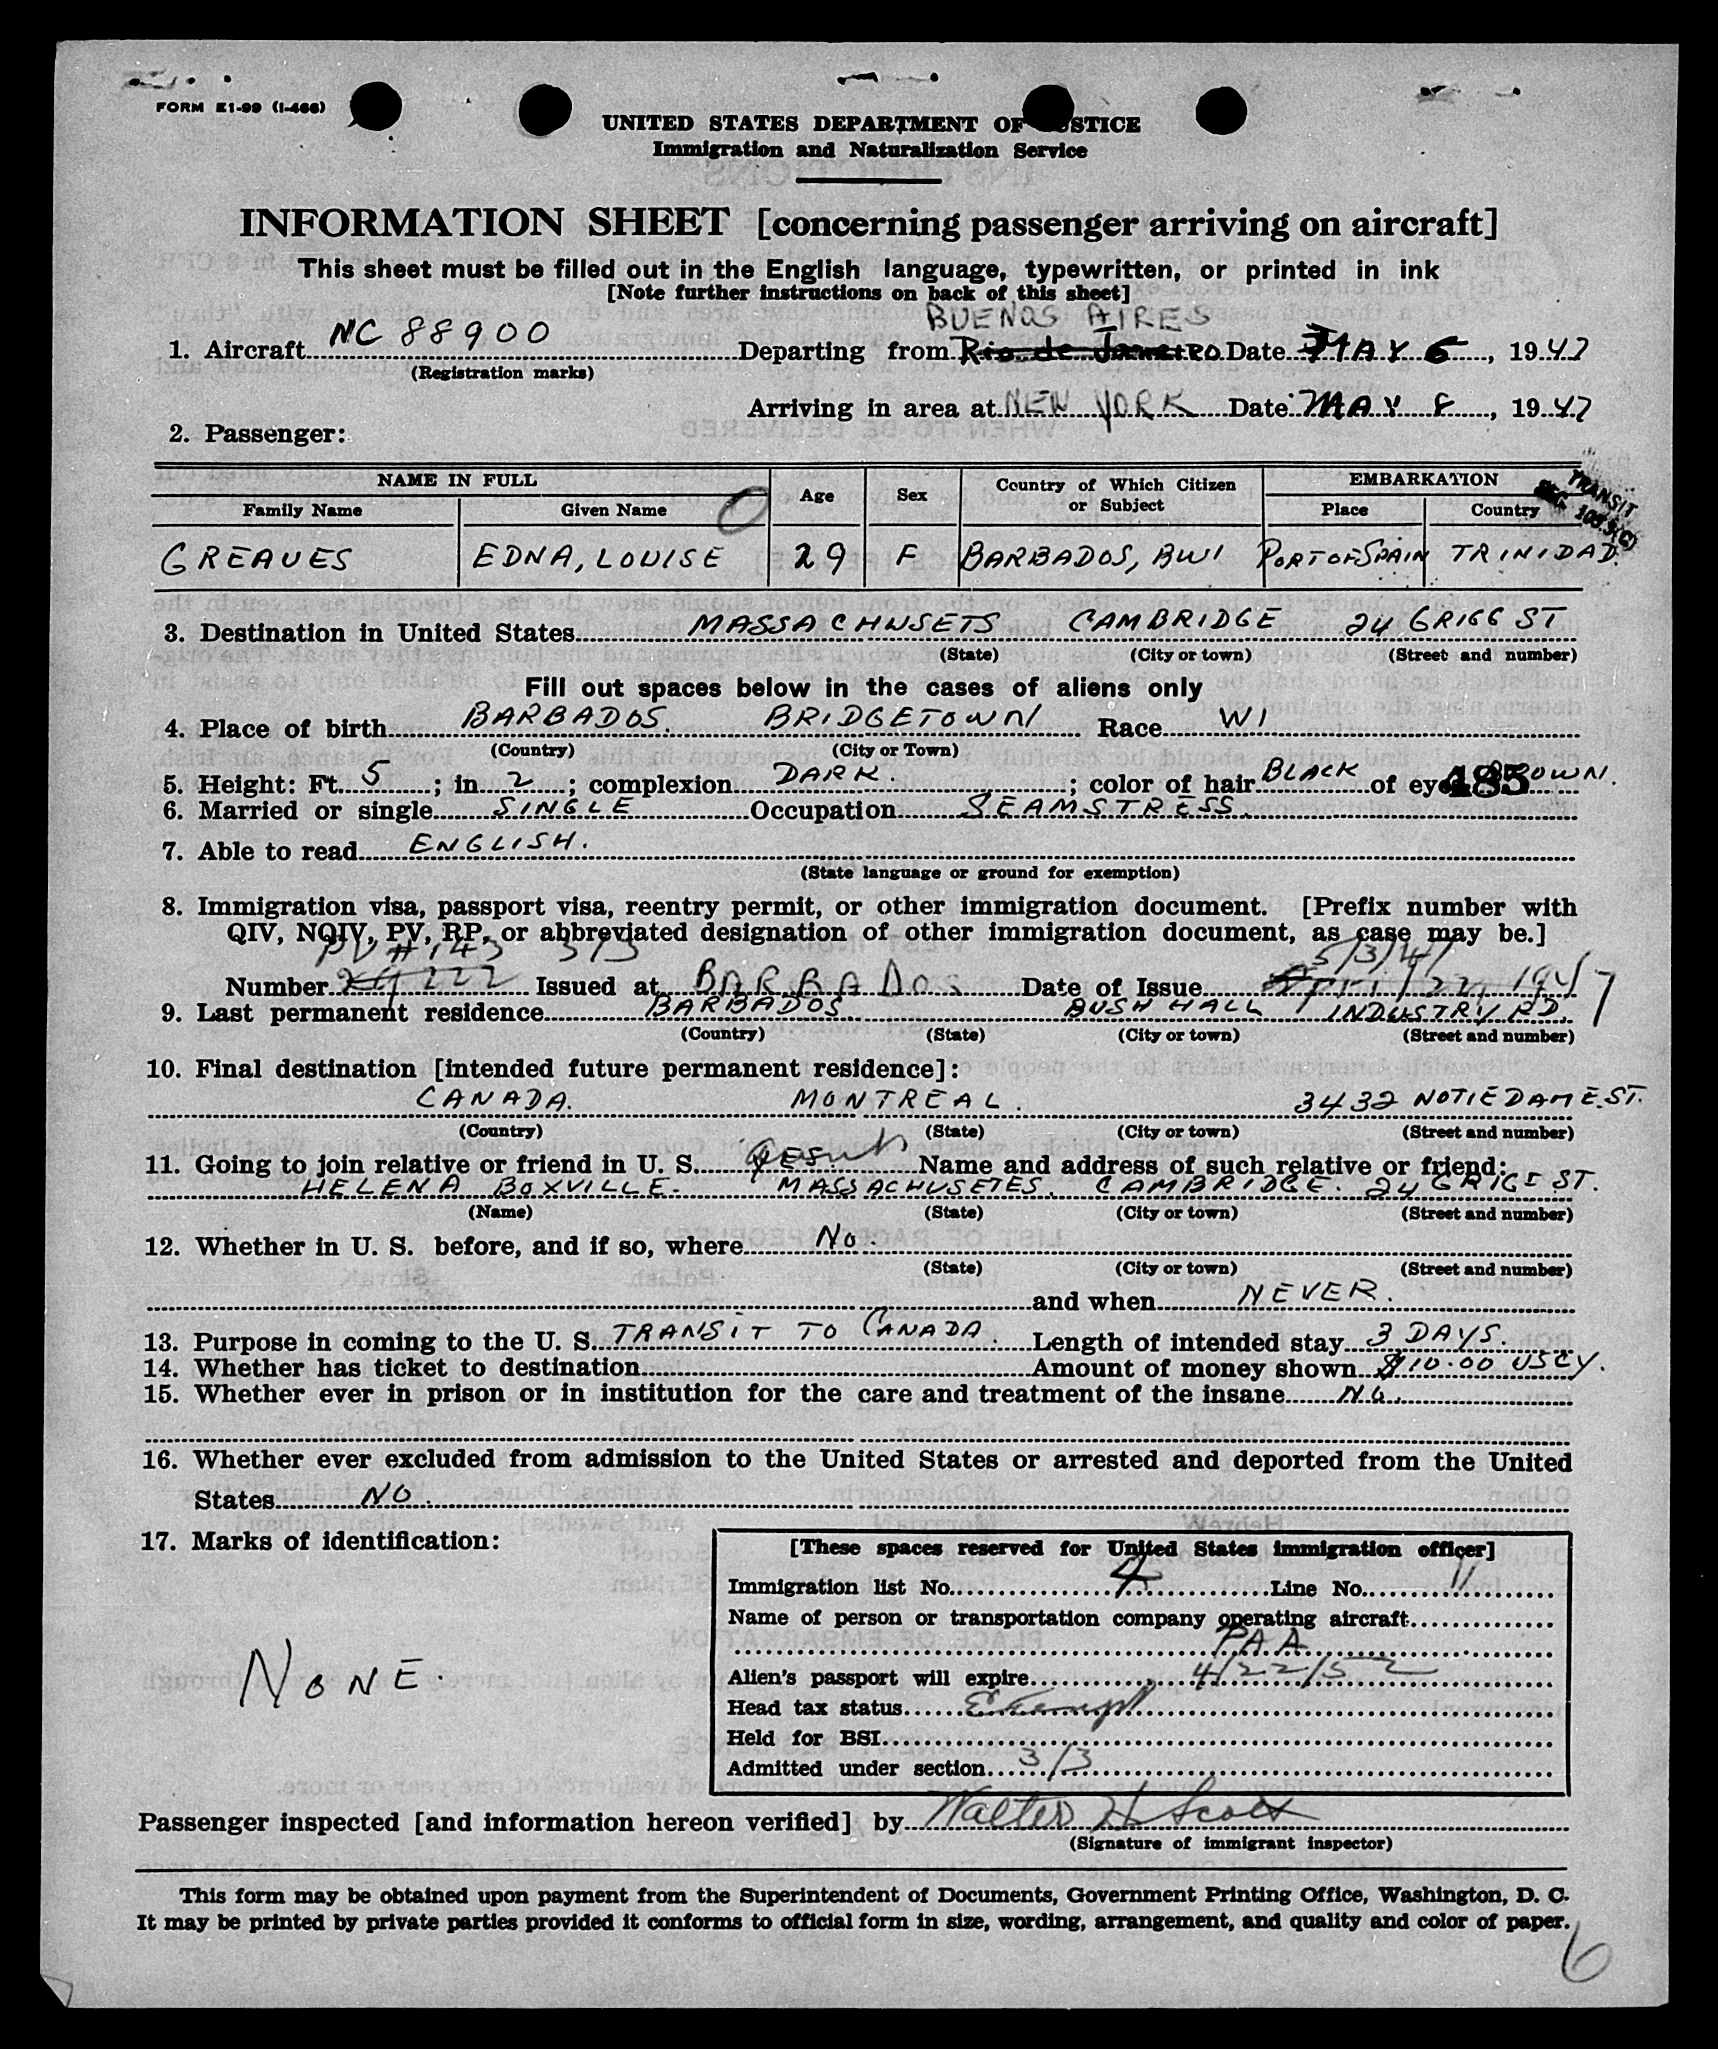 FORM I-99 (I-466)
UNITED STATES DEPARTMENT OF JUSTICE
Immigration and Naturalization Service
INFORMATION SHEET [concerning passenger arriving on aircraft]
This sheet must be filled out in the English language, typewritten, or printed in ink
[Note further instructions on back of this sheet]
BUENOS AIRES
1. Aircraft NC 88900 Departing from Rio de Janeiro Date MAY 6, 1947
(Registration marks)
Arriving in area at NEW YORK Date MAY 8, 1947
2. Passenger:
TRANSIT
SEC 103.3(c)
NAME IN FULL Age Sex Country of Which Citizen or Subject EMBARKATION
Family Name Given Name Place Country
GREAVES EDNA, LOUISE 29 F BARBADOS, BWI PORT OF SPAIN TRINIDAD.
3. Destination in United States MASSACHUSETS CAMBRIDGE 24 GRIGG ST
(State) (City or town) (Street and number)
Fill out spaces below in the cases of aliens only
4. Place of birth BARBADOS. BRIDGETOWN Race WI
(Country) (City or Town)
5. Height: Ft. 5; in 2; complexion DARK.; color of hair BLACK of eyes BROWN.
485
6. Married or single SINGLE Occupation SEAMSTRESS.
7. Able to read ENGLISH.
(State language or ground for exemption)
8. Immigration visa, passport visa, reentry permit, or other immigration document. [Prefix number with
QIV, NQIV, PV, RP, or abbreviated designation of other immigration document, as case may be.]
PV # 143 3/3 5/3/47
Number 222 Issued at BARBADOS Date of Issue April 22, 1947
9. Last permanent residence BARBADOS. BUSH HALL INDUSTRY RD.
(Country) (State) (City or town) (Street and number)
10. Final destination [intended future permanent residence]:
CANADA. MONTREAL. 3432 NOTIEDAME.ST.
(Country) (State) (City or town) (Street and number)
11. Going to join relative or friend in U. S. YES. Name and address of such relative or friend:
HELENA BOXVILLE. MASSACHUSETES. CAMBRIDGE. 24 GRIGG ST.
(Name) (State) (City or town) (Street and number)
12. Whether in U. S. before, and if so, where No.
(State) (City or town) (Street and number)
and when NEVER.
13. Purpose in coming to the U. S. TRANSIT TO CANADA. Length of intended stay 3 DAYS.
14. Whether has ticket to destination Amount of money shown $10.00 USCY.
15. Whether ever in prison or in institution for the care and treatment of the insane No.
16. Whether ever excluded from admission to the United States or arrested and deported from the United
States NO.
17. Marks of identification:
NONE.
[These spaces reserved for United States immigration officer]
Immigration list No. 4 Line No. 11
Name of person or transportation company operating aircraft
PAA
Alien's passport will expire 4/22/52
Head tax status Exempt
Held for BSI
Admitted under section 3/3
Passenger inspected [and information hereon verified] by Walter H Scott
(Signature of immigrant inspector)
This form may be obtained upon payment from the Superintendent of Documents, Government Printing Office, Washington, D. C.
It may be printed by private parties provided it conforms to official form in size, wording, arrangement, and quality and color of paper.
6